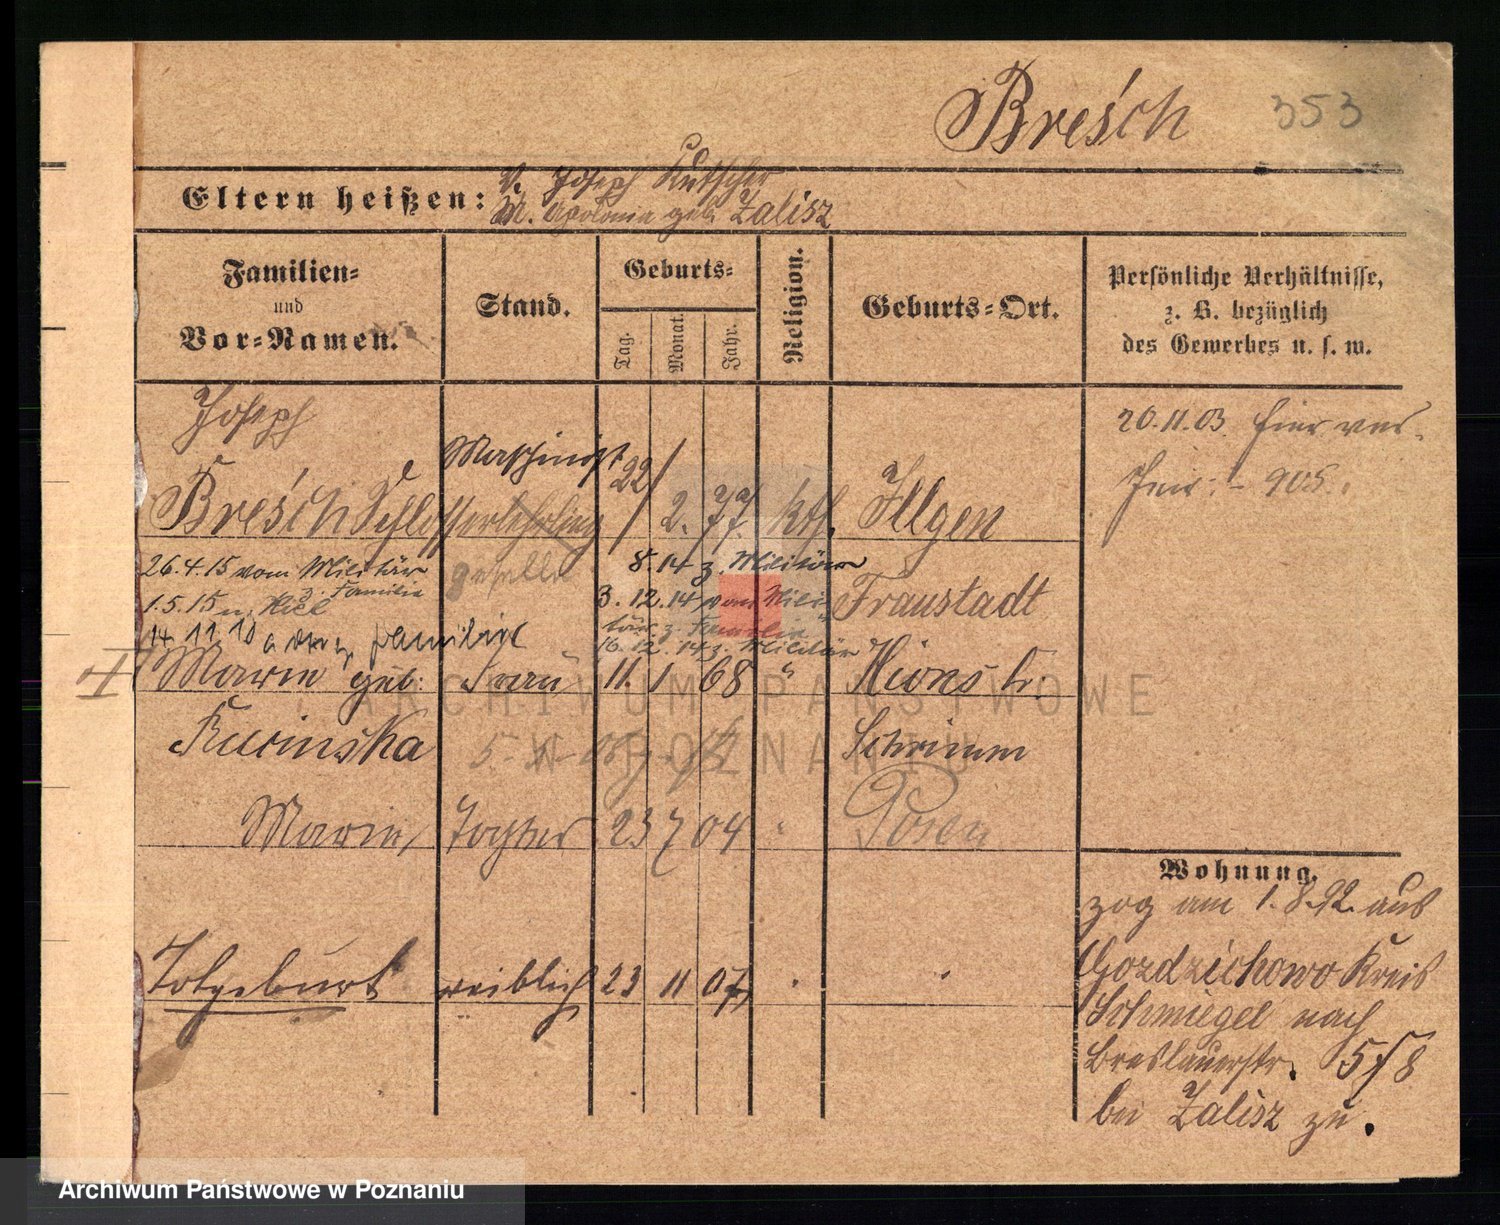 Breśch 353
Eltern heißen:
V. Joseph Kutscher
M. Apolonia geb. Zalisz
Familien-
und
Vor-Namen.
Stand.
Geburts-
Tag.
Monat.
Jahr.
Religion.
Geburts-Ort.
Persönliche Verhältnisse,
z. B. bezüglich
des Gewerbes u. s. w.
Joseph
Maschinist
Breśch Schlosserlehrling 22/ 2. 77. kth. Illgen
geselle
Fraustadt
26.4.15 vom Militär
z. Familie
1.5.15 n. Kiel
14 11 10
8.14 z. Militär
3.12.14 vom Mili
tär z. Familie
16.12.14 z. Militär
Marie geb. Frau 11. 1 68 " Xions Kr.
Kucinska Schrimm
Marie, Tochter 23 7 04 " Posen
Totgeburt weiblich 23 11 07 " "
20.11.03.
905.
Wohnung.
zog am 1.8.92. aus
Gozdzichowo Kreis
Schmiegel nach
Breslauerstr. 5/8
bei Zalisz zu.
ARCHIWUM PAŃSTWOWE
W POZNANIU
Archiwum Państwowe w Poznaniu